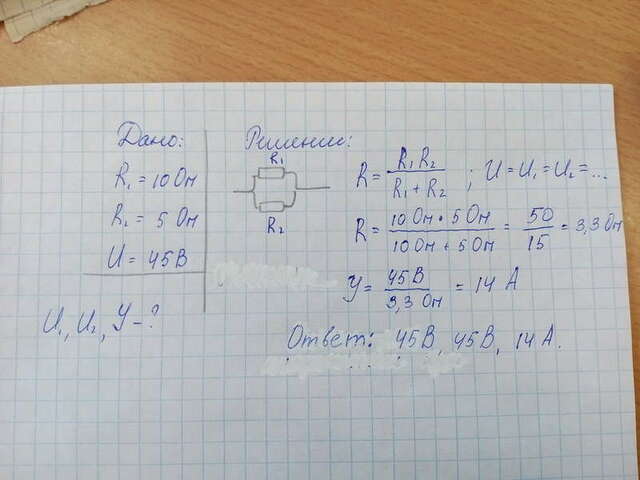 Дано:
R₁ = 10 Ом
R₂ = 5 Ом
U = 45 В
U₁, U₂, У - ?
Решение:
R₁
R₂
R = R₁R₂ / R₁ + R₂ ; U = U₁ = U₂ = ...
R = 10 Ом · 5 Ом / 10 Ом + 5 Ом = 50 / 15 = 3,3 Ом
У = 45 В / 3,3 Ом = 14 А
Ответ: 45 В, 45 В, 14 А.